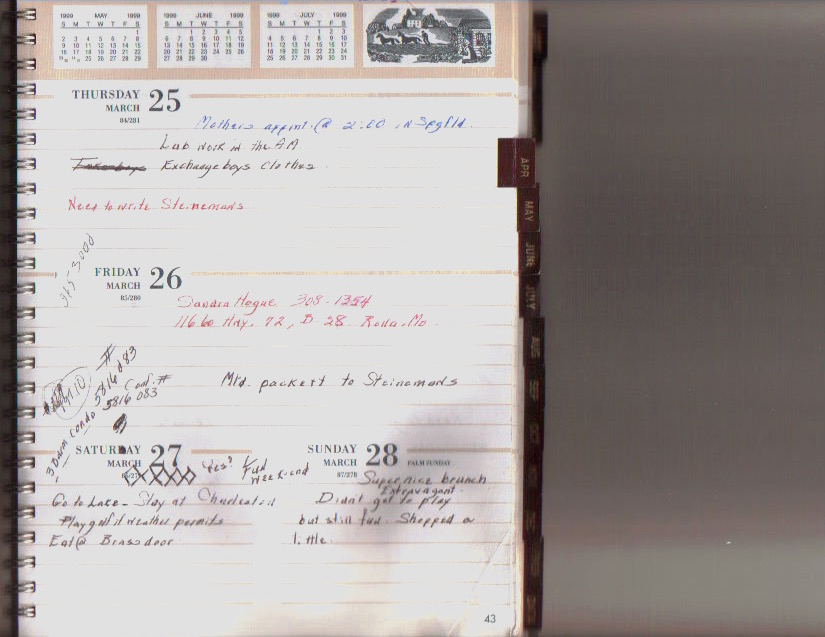 1999 MAY 1999
S M T W T F S
1
2 3 4 5 6 7 8
9 10 11 12 13 14 15
16 17 18 19 20 21 22
23/30 24/31 25 26 27 28 29
1999 JUNE 1999
S M T W T F S
1 2 3 4 5
6 7 8 9 10 11 12
13 14 15 16 17 18 19
20 21 22 23 24 25 26
27 28 29 30
1999 JULY 1999
S M T W T F S
1 2 3
4 5 6 7 8 9 10
11 12 13 14 15 16 17
18 19 20 21 22 23 24
25 26 27 28 29 30 31
THURSDAY 25
MARCH
84/281
Mothers appint. @ 2:00 in Spgfld.
Lab work in the AM
Exchange boys Clothes
Need to write Steinemans
365-3000
FRIDAY 26
MARCH
85/280
Sandra Hogue 308-1354
1166 Hwy. 72, B-28 Rolla, Mo.
Mld. packett to Steinemans
#
5816083
Conf. #
5816083
191.10
3 Dawn Condo
SATURDAY 27
MARCH
Yes? Fun
weekend
Go to Lake - Stay at Charleston
Play golf if weather permits
Eat @ Brass door
SUNDAY 28 PALM SUNDAY
MARCH
87/278
Super nice brunch
Extravagant.
Didn't get to play
but still fun. Shopped a
little.
APR
MAY
JUNE
JULY
AUG
SEP
OCT
43